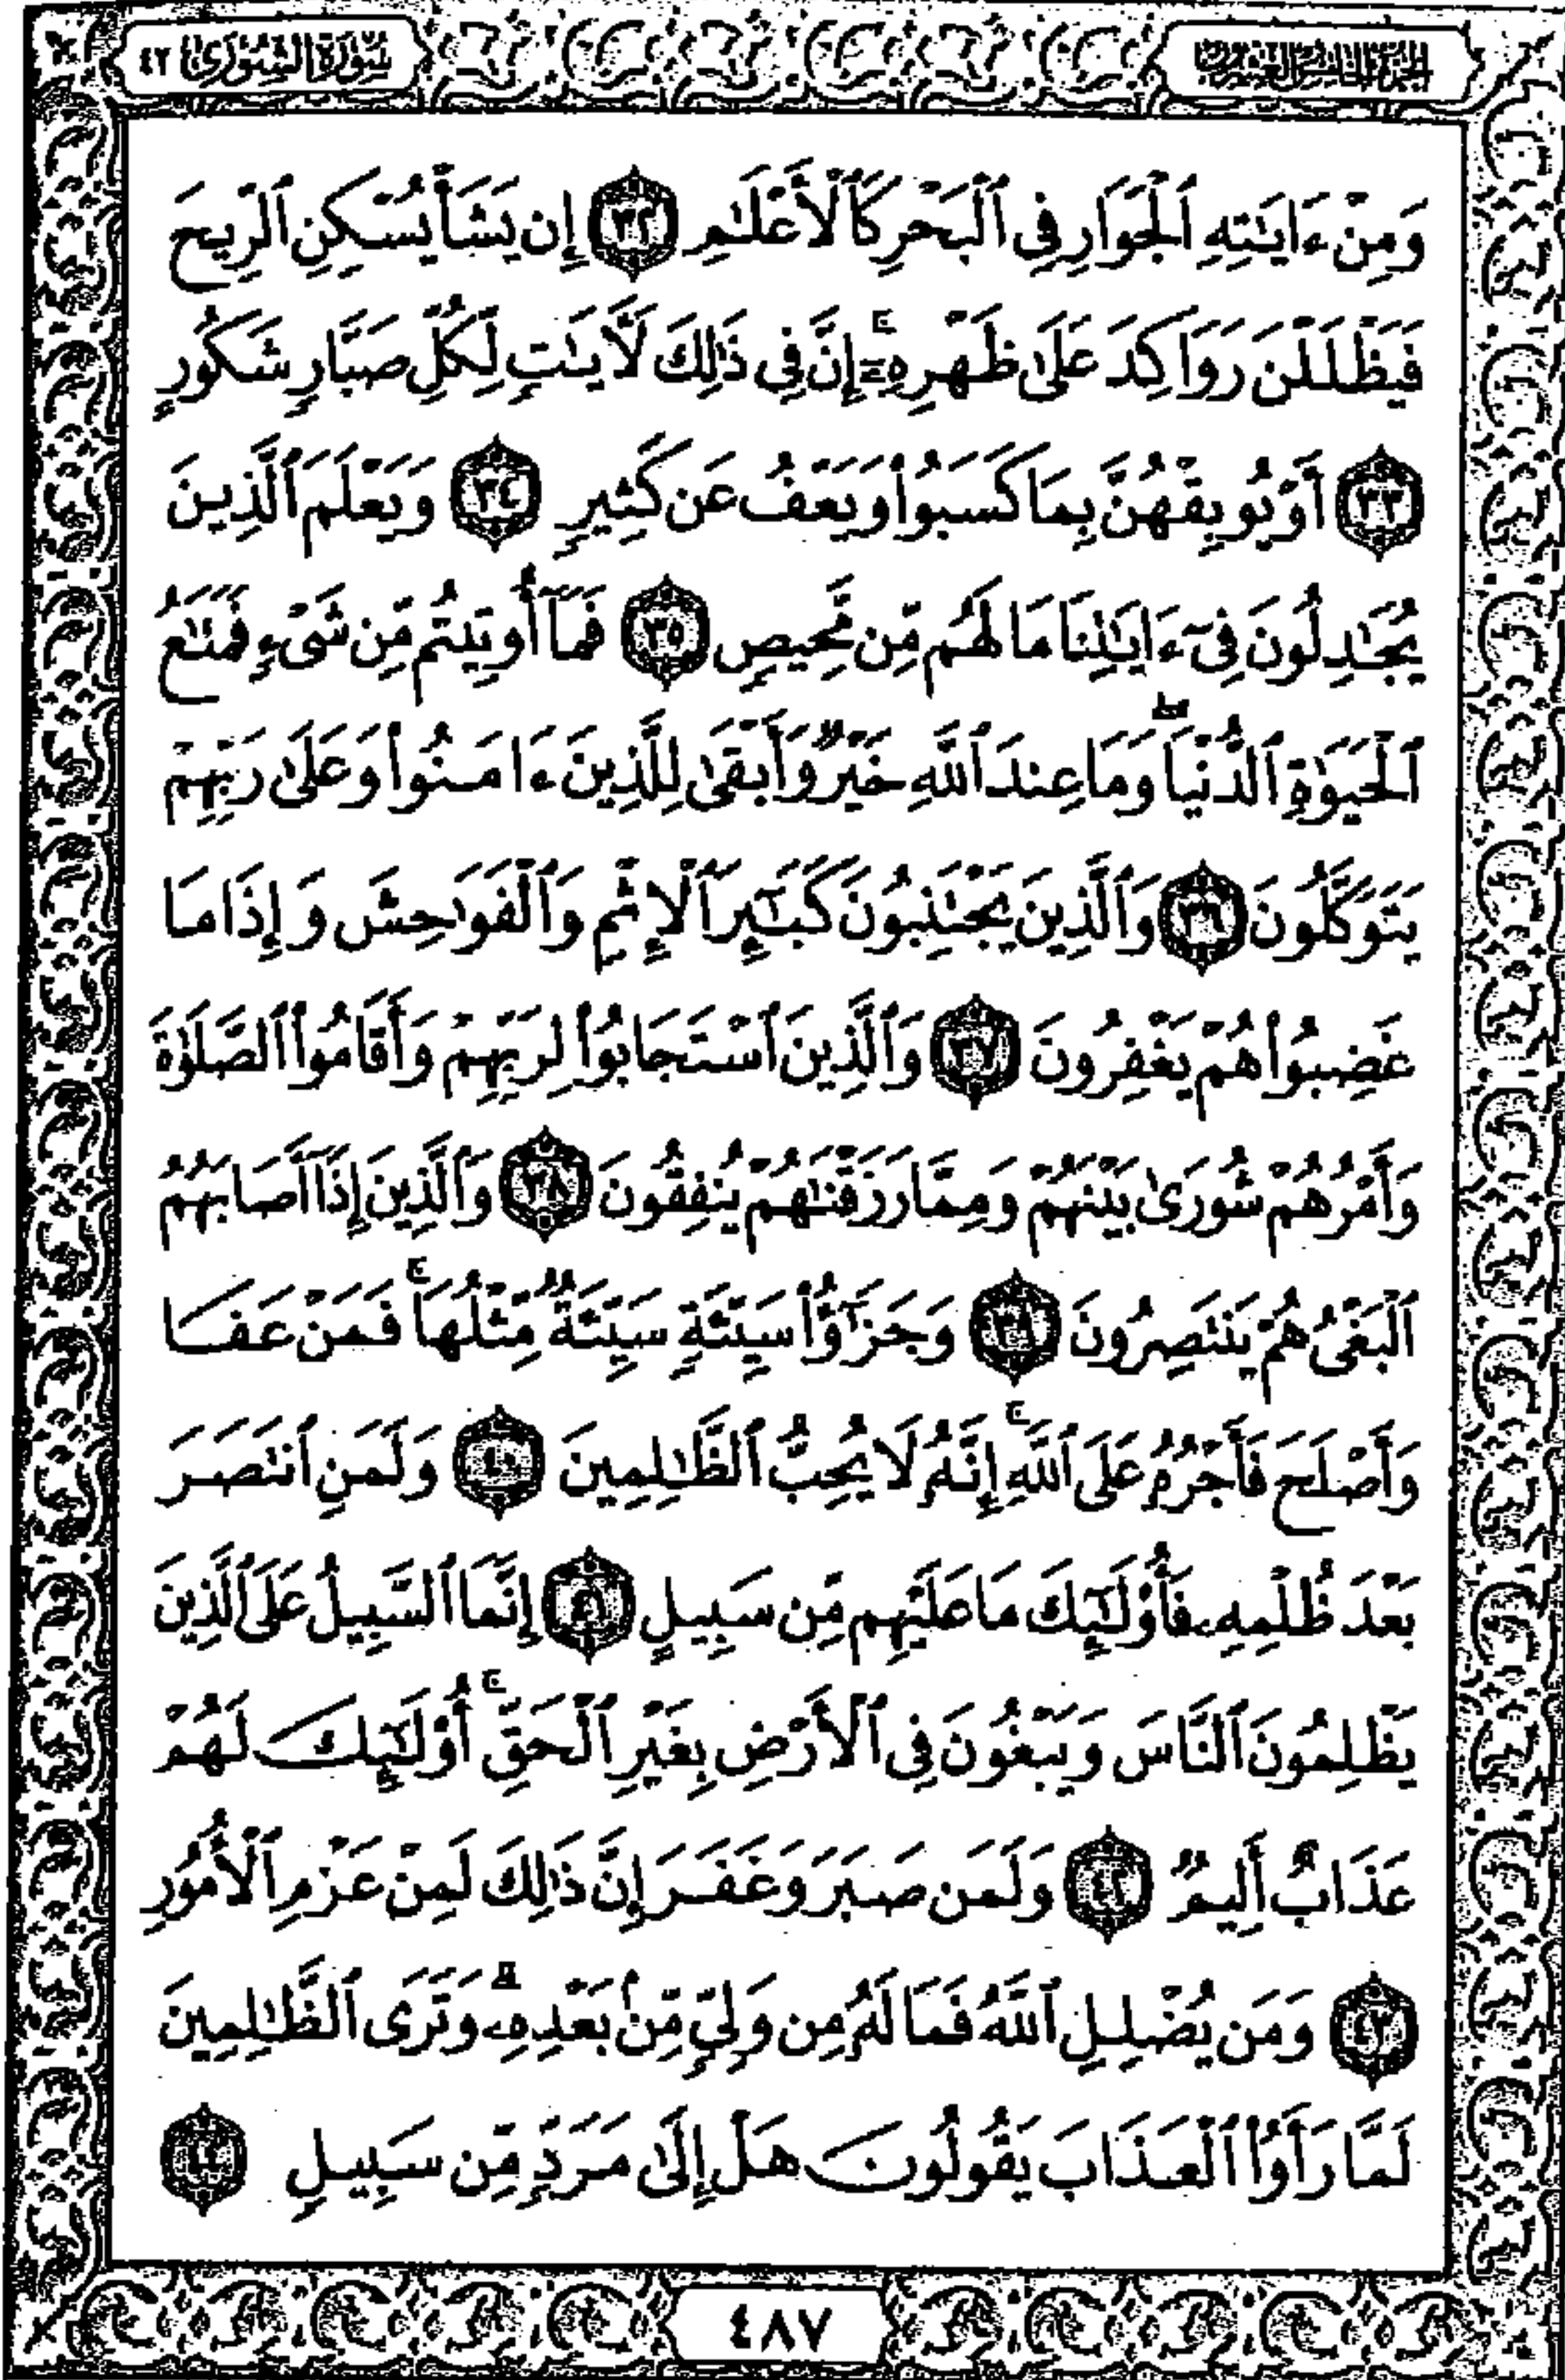 الجزء الخامس والعشرون
سُورَةُ الشُّورَىٰ ٤٢
وَمِنْ ءَايَٰتِهِ ٱلْجَوَارِ فِى ٱلْبَحْرِ كَٱلْأَعْلَٰمِ ٣٢ إِن يَشَأْ يُسْكِنِ ٱلرِّيحَ
فَيَظْلَلْنَ رَوَاكِدَ عَلَىٰ ظَهْرِهِۦٓ ۚ إِنَّ فِى ذَٰلِكَ لَءَايَٰتٍ لِّكُلِّ صَبَّارٍ شَكُورٍ
٣٣ أَوْ يُوبِقْهُنَّ بِمَا كَسَبُوا۟ وَيَعْفُ عَن كَثِيرٍ ٣٤ وَيَعْلَمَ ٱلَّذِينَ
يُجَٰدِلُونَ فِىٓ ءَايَٰتِنَا مَا لَهُم مِّن مَّحِيصٍ ٣٥ فَمَآ أُوتِيتُم مِّن شَىْءٍ فَمَتَٰعُ
ٱلْحَيَوٰةِ ٱلدُّنْيَا ۖ وَمَا عِندَ ٱللَّهِ خَيْرٌ وَأَبْقَىٰ لِلَّذِينَ ءَامَنُوا۟ وَعَلَىٰ رَبِّهِمْ
يَتَوَكَّلُونَ ٣٦ وَٱلَّذِينَ يَجْتَنِبُونَ كَبَٰٓئِرَ ٱلْإِثْمِ وَٱلْفَوَٰحِشَ وَإِذَا مَا
غَضِبُوا۟ هُمْ يَغْفِرُونَ ٣٧ وَٱلَّذِينَ ٱسْتَجَابُوا۟ لِرَبِّهِمْ وَأَقَامُوا۟ ٱلصَّلَوٰةَ
وَأَمْرُهُمْ شُورَىٰ بَيْنَهُمْ وَمِمَّا رَزَقْنَٰهُمْ يُنفِقُونَ ٣٨ وَٱلَّذِينَ إِذَآ أَصَابَهُمُ
ٱلْبَغْىُ هُمْ يَنتَصِرُونَ ٣٩ وَجَزَٰٓؤُا۟ سَيِّئَةٍ سَيِّئَةٌ مِّثْلُهَا ۖ فَمَنْ عَفَا
وَأَصْلَحَ فَأَجْرُهُۥ عَلَى ٱللَّهِ ۚ إِنَّهُۥ لَا يُحِبُّ ٱلظَّٰلِمِينَ ٤٠ وَلَمَنِ ٱنتَصَرَ
بَعْدَ ظُلْمِهِۦ فَأُو۟لَٰٓئِكَ مَا عَلَيْهِم مِّن سَبِيلٍ ٤١ إِنَّمَا ٱلسَّبِيلُ عَلَى ٱلَّذِينَ
يَظْلِمُونَ ٱلنَّاسَ وَيَبْغُونَ فِى ٱلْأَرْضِ بِغَيْرِ ٱلْحَقِّ ۚ أُو۟لَٰٓئِكَ لَهُمْ
عَذَابٌ أَلِيمٌ ٤٢ وَلَمَن صَبَرَ وَغَفَرَ إِنَّ ذَٰلِكَ لَمِنْ عَزْمِ ٱلْأُمُورِ
٤٣ وَمَن يُضْلِلِ ٱللَّهُ فَمَا لَهُۥ مِن وَلِىٍّ مِّنۢ بَعْدِهِۦ ۗ وَتَرَى ٱلظَّٰلِمِينَ
لَمَّا رَأَوُا۟ ٱلْعَذَابَ يَقُولُونَ هَلْ إِلَىٰ مَرَدٍّ مِّن سَبِيلٍ ٤٤
٤٨٧